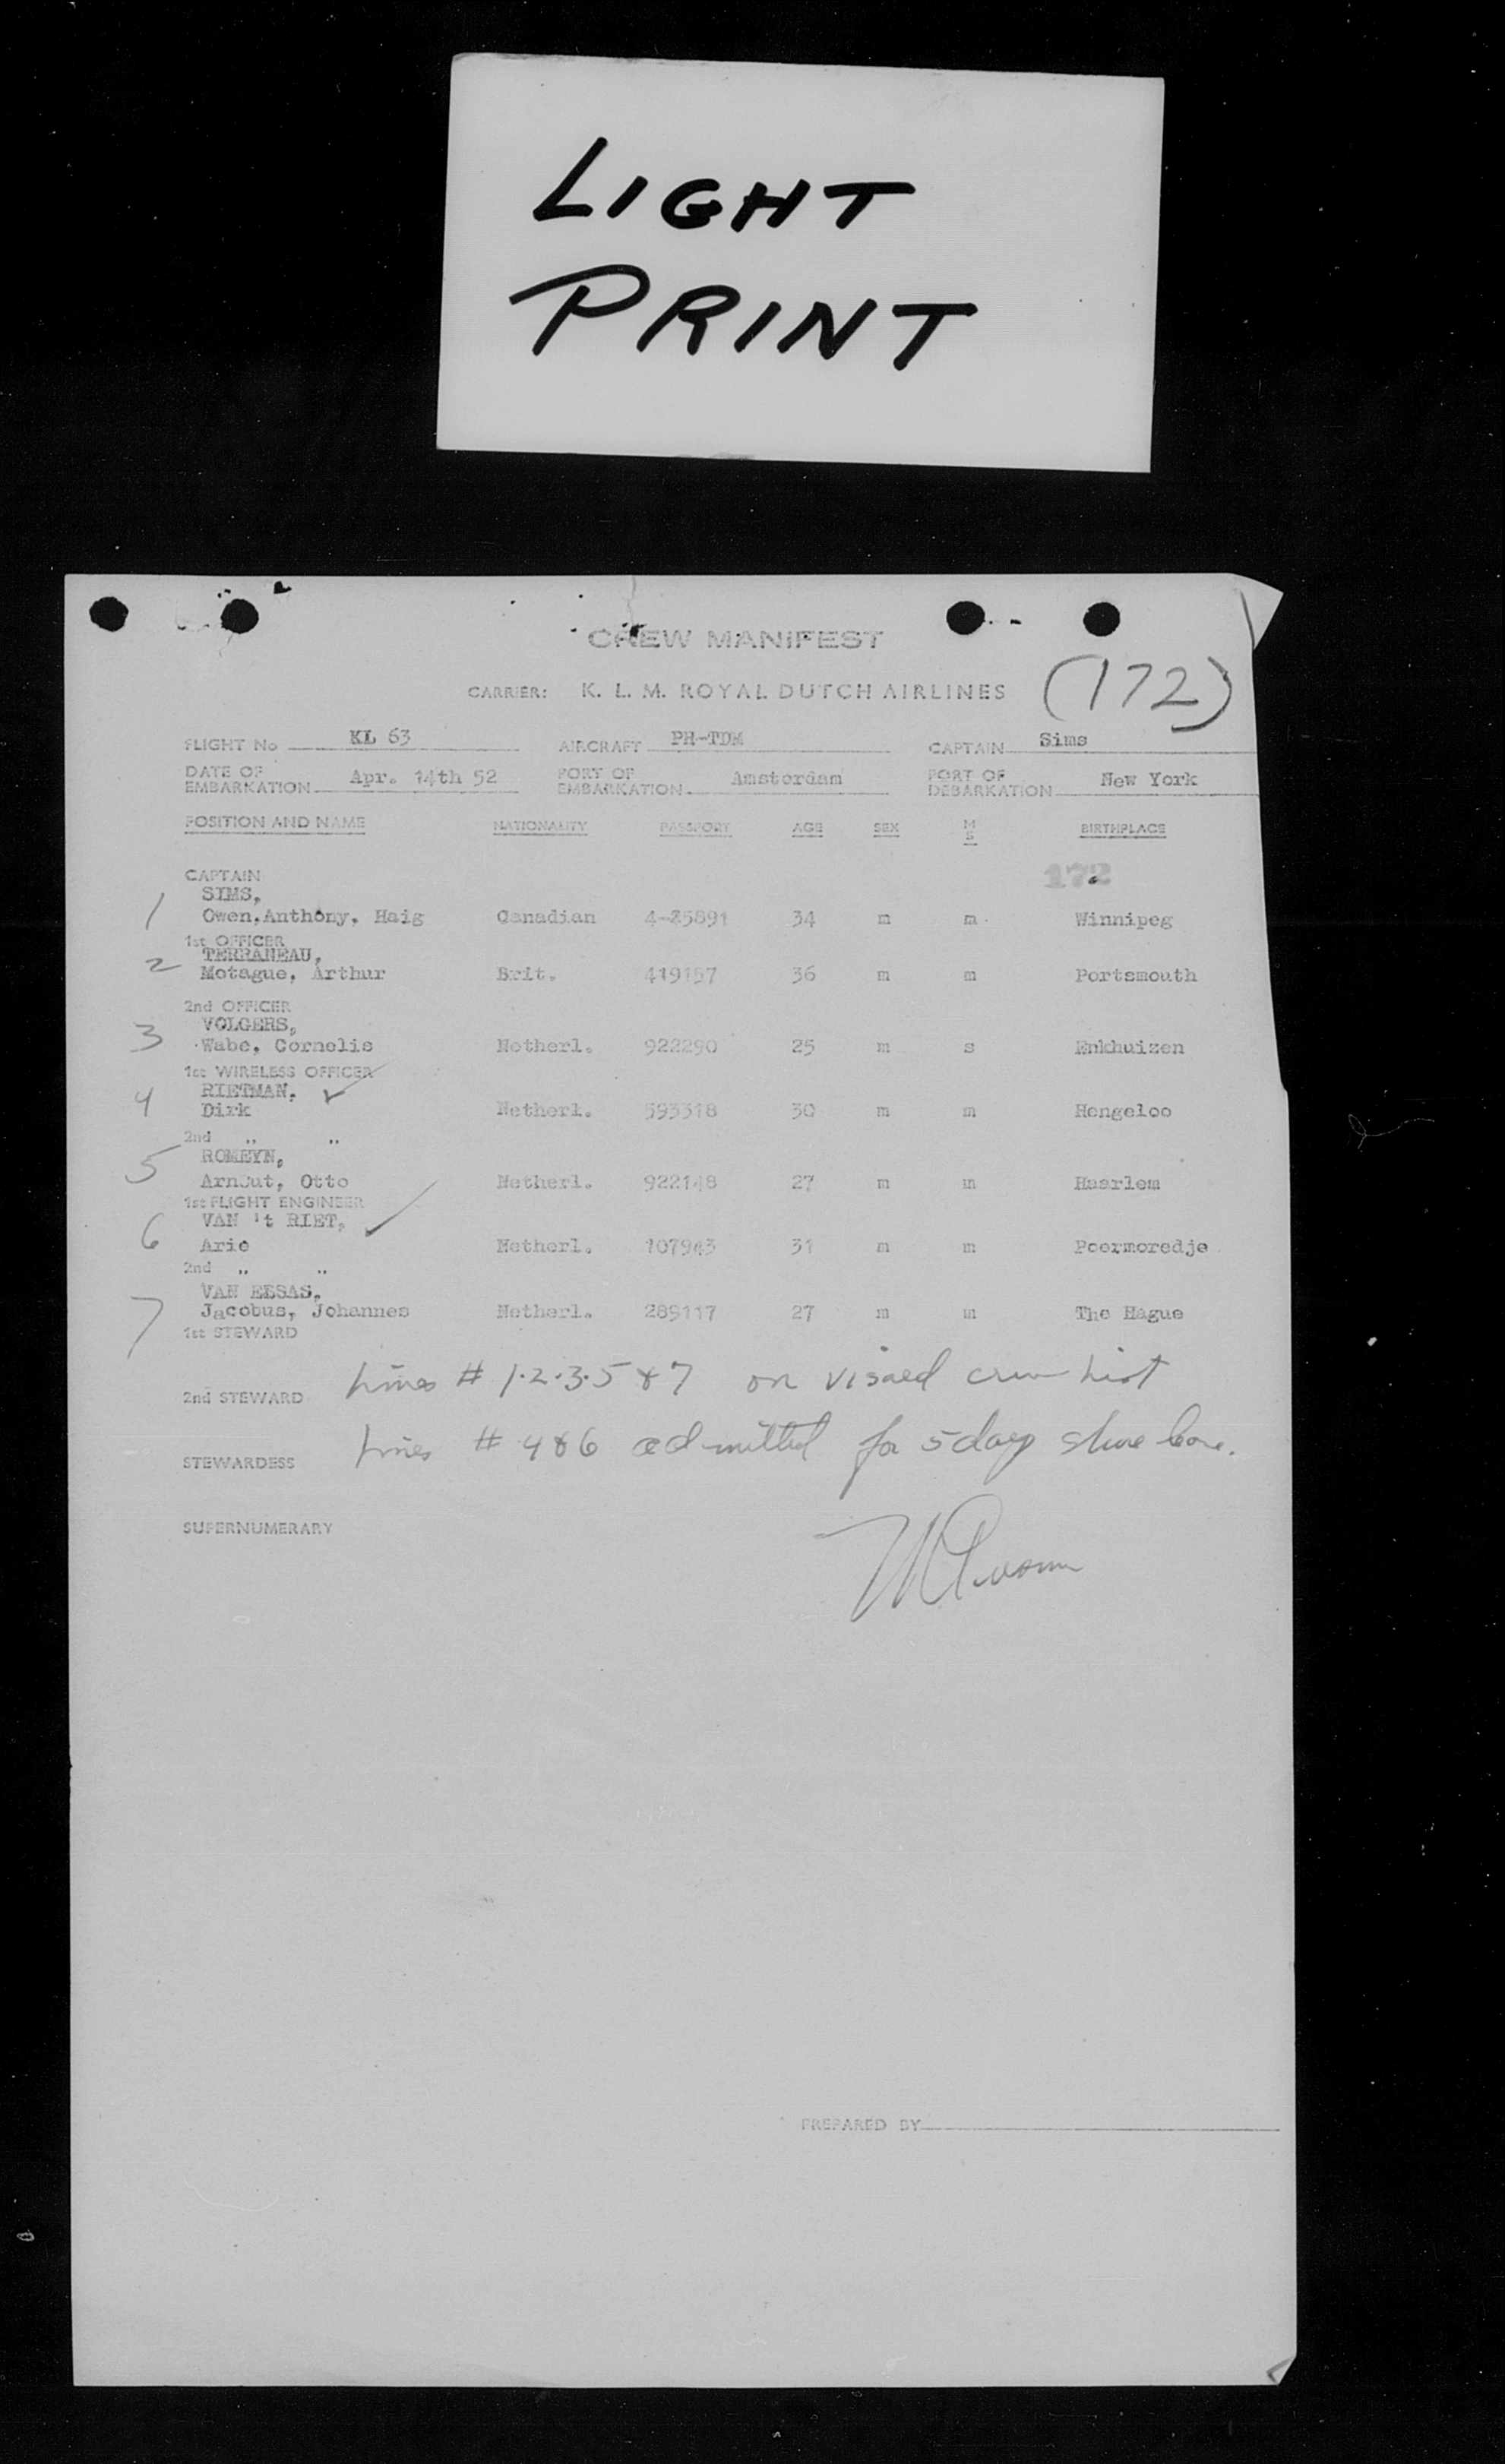 LIGHT
PRINT
CREW MANIFEST
CARRIER: K. L. M. ROYAL DUTCH AIRLINES (172)
FLIGHT No KL 63 AIRCRAFT PH-TDM CAPTAIN Sims
DATE OF EMBARKATION Apr. 14th 52 PORT OF EMBARKATION Amsterdam PORT OF DEBARKATION New York
POSITION AND NAME NATIONALITY PASSPORT AGE SEX M S BIRTHPLACE
172
CAPTAIN
SIMS,
1 Owen.Anthony, Haig Canadian 4-25891 34 m m Winnipeg
1st OFFICER
TERRANEAU,
2 Motague, Arthur Brit. 419157 36 m m Portsmouth
2nd OFFICER
VOLGERS,
3 Wabe, Cornelis Netherl. 922290 25 m s Enkhuizen
1st WIRELESS OFFICER
RIETMAN, ✓
4 Dirk Netherl. 593318 30 m m Hengeloo
2nd „ „
ROMEYN,
5 Arnout, Otto Netherl. 922148 27 m m Haarlem
1st FLIGHT ENGINEER
VAN 't RIET, ✓
6 Arie Netherl. 107943 31 m m Poermoredjo
2nd „ „
VAN EESAS,
7 Jacobus, Johannes Netherl. 289117 27 m m The Hague
1st STEWARD
Lines # 1.2.3.5 & 7 on visaed crew list
2nd STEWARD
Lines # 4 & 6 admitted for 5 days shore leave.
STEWARDESS
SUPERNUMERARY
PREPARED BY